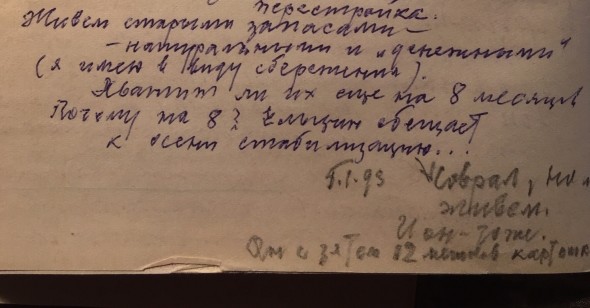 перестройка.
Живем старыми запасами —
— натуральными и „денежными"
(я имею в виду сбережения).
Хватит ли их еще на 8 месяцев
Почему на 8? Ельцин обещает
к осени стабилизацию...
1.93 Соврал, но
живем.
И он - тоже.
12 мешков картошк